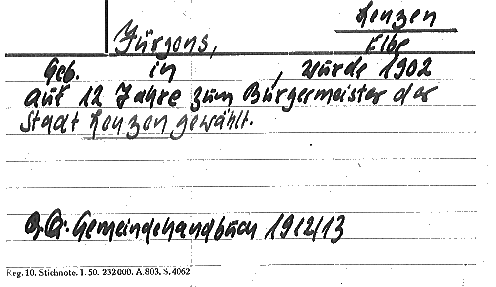 Lenzen
Jürgens,
Elbe
Geb. in , wurde 1902
auf 12 Jahre zum Bürgermeister der
Stadt Lenzen gewählt.
Gemeindehandbuch 1912/13
Reg. 10. Stichnote. 1. 50. 232000. A. 803. S. 4062